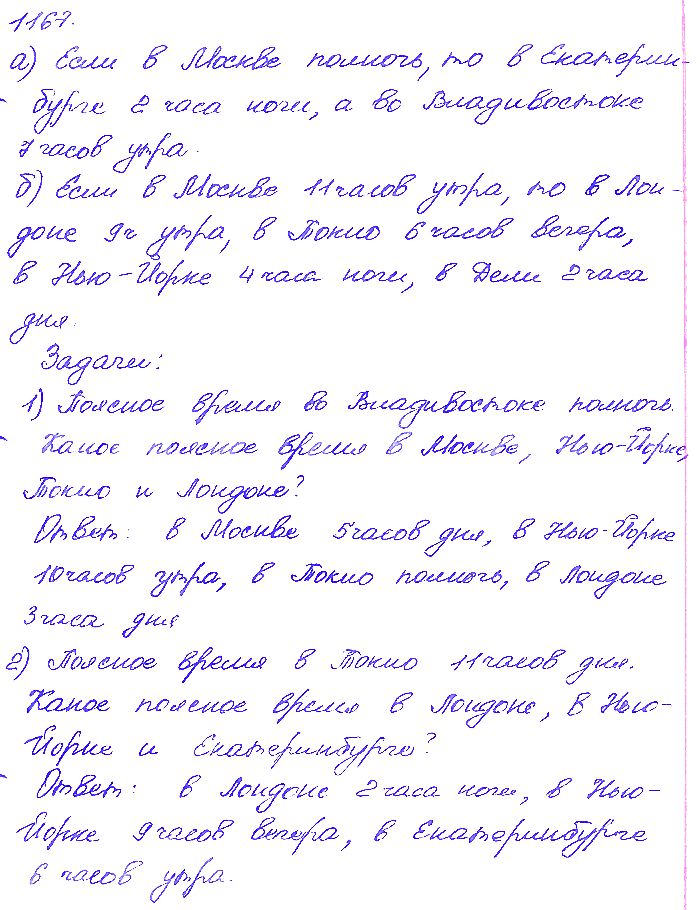 1167.
а) Если в Москве полночь, то в Екатерин-
бурге 2 часа ночи, а во Владивостоке
7 часов утра.
б) Если в Москве 11 часов утра, то в Лон-
доне 9ч утра, в Токио 6 часов вечера,
в Нью-Йорке 4 часа ночи, в Дели 2 часа
дня.
Задачи:
1) Поясное время во Владивостоке полночь.
Какое поясное время в Москве, Нью-Йорке,
Токио и Лондоне?
Ответ: в Москве 5 часов дня, в Нью-Йорке
10 часов утра, в Токио полночь, в Лондоне
3 часа дня
2) Поясное время в Токио 11 часов дня.
Какое поясное время в Лондоне, в Нью-
Йорке и Екатеринбурге?
Ответ: в Лондоне 2 часа ночи, в Нью-
Йорке 9 часов вечера, в Екатеринбурге
6 часов утра.